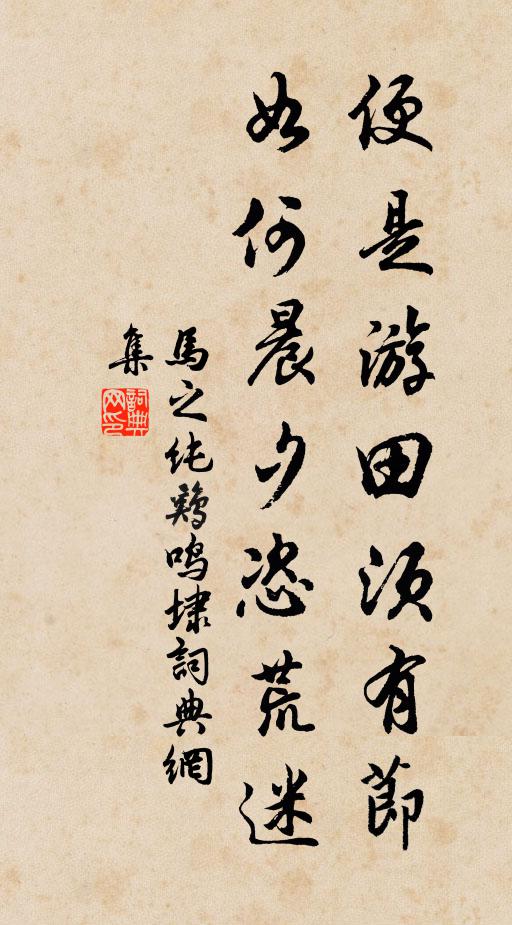 便是游田須有節
如何晨夕恣荒迷
馬之純鷄鳴埭詞典網
集
詞典網印